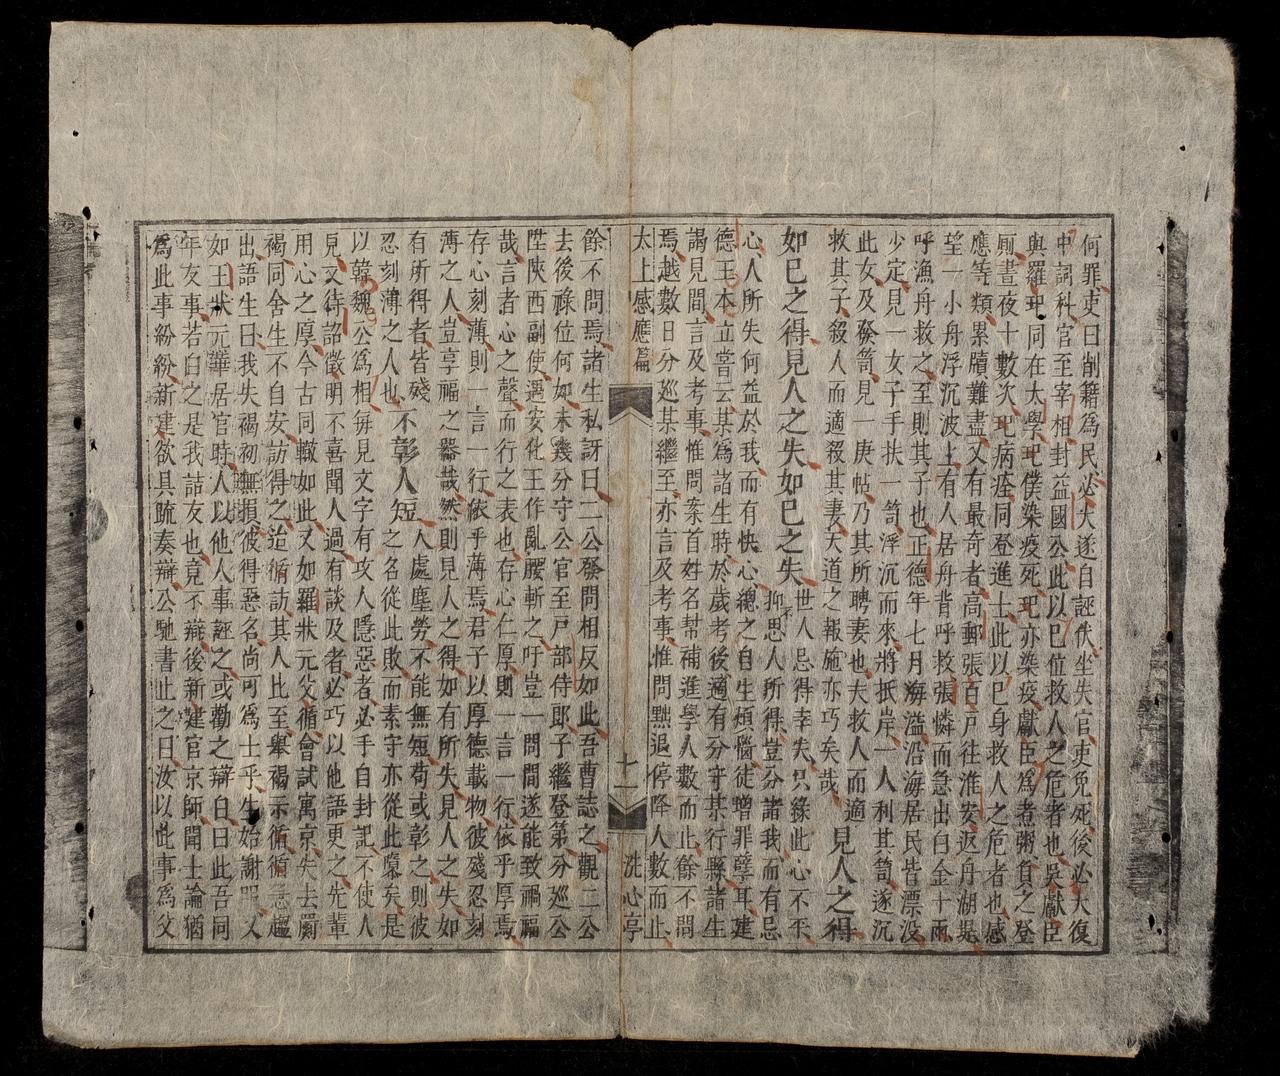 何罪吏曰削籍爲民必大遂自誣伏坐失官吏免死後必大復
中詞科官至宰相封益國公此以已位救人之危者也吳獻臣
與羅玘同在太學玘僕染疫死玘亦染疫獻臣爲煮粥負之登
厠晝夜十數次玘病痊同登進士此以已身救人之危者也感
應等類累牘難盡又有最奇者高郵張百戶往淮安返舟湖
望一小舟浮沉波上有人居舟背呼救張憐而急出白金十兩
呼漁舟救之至則其子也正德年七月海溢沿海居民皆漂没
少定見一女子手扶一笥浮沉而來將抵岸一人利其笥遂沉
此女及發笥見一庚帖乃其所聘妻也夫救人而適
救其子殺人而適殺其妻天道之報施亦巧矣哉 見人之得
如已之得見人之失如已之失 世人忌得幸失只緣此心不平抑不思人所得豈分諸我而有忌
心人所失何益於我而有快心總之自生煩惱徒增罪孽耳建
德王本立嘗云某爲諸生時於歲考後適有分守某行縣諸生
謁見間言及考事惟問案首姓名幇補進學人數而止餘不問
焉越數日分巡某繼至亦言及考事惟問黜退停降人數而止
太上感應篇 十一 洗心亭
餘不問焉諸生私訝曰二公發問相反如此吾曹誌之觀二公
去後祿位何如未幾分守公官至戸部侍郎子繼登第分巡公
陞陝西副使遇安化王作亂腰斬之吁豈一問間遂能致禍福
哉言者心之聲而行之表也存心仁厚則一言一行依乎厚焉
存心刻薄則一言一行依乎薄焉君子以厚德載物彼殘忍刻
薄之人豈享福之器哉然則見人之得如有所失見人之失如
有所得者皆殘
忍刻薄之人也 不彰人短 人處塵勞不能無短苟或彰之則彼
之名從此敗而素守亦從此隳矣是
以韓魏公爲相每見文字有攻人隱惡者必手自封記不使人
見文待詔徵明不喜聞人過有談及者必巧以他語更之先輩
用心之厚今古同轍如此又如羅狀元父循會試寓京失去罽
褐同舍生不自安訪得之迨循訪其人比至舉褐示循循急趨
出語生曰我失褐初無損彼得惡名尚可爲士乎生始謝
如王狀元華居官時人以他人事誣之或勸之辯白曰此吾同
年友事若白之是我詰友也竟不辯後新建官京師聞士論猶
爲此事紛紛新建欲具疏奏辯公馳書止之曰汝以此事爲父